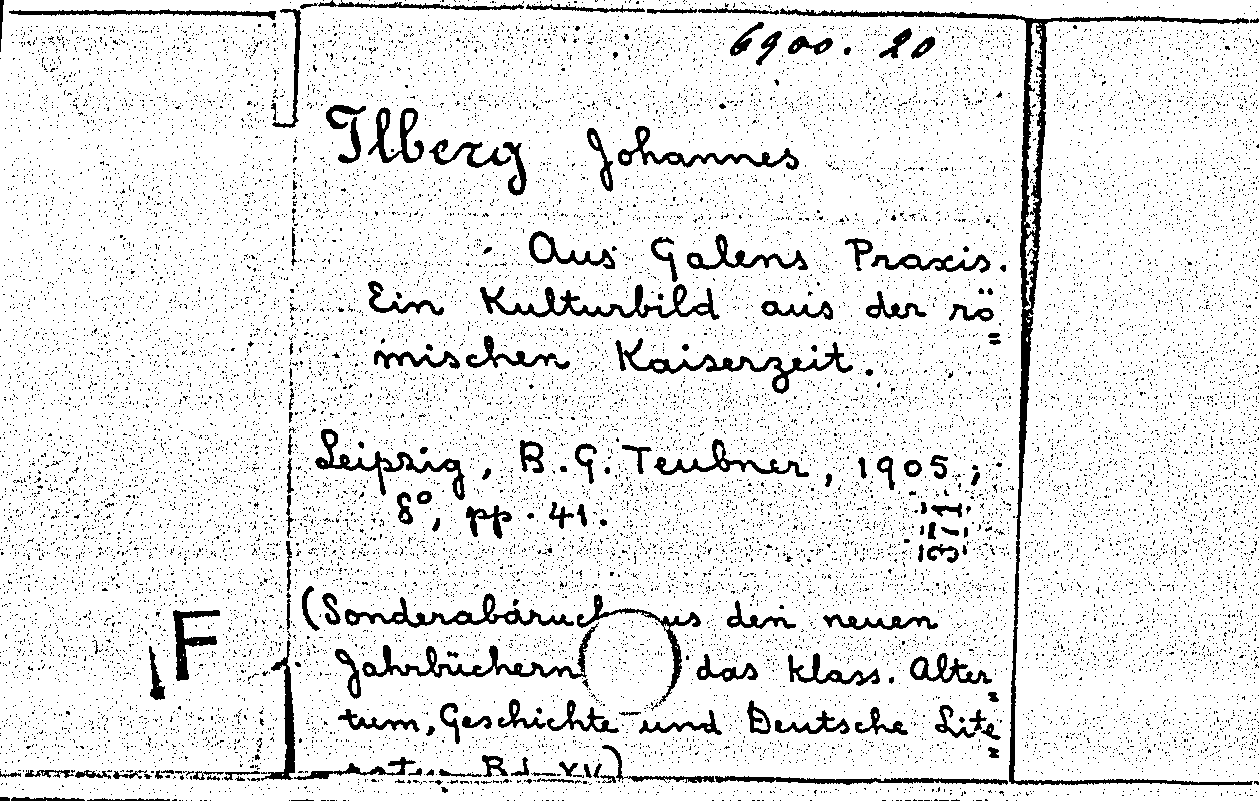 6900. 20
Ilberg Johannes
Aus Galens Praxis.
Ein Kulturbild aus der rö=
mischen Kaiserzeit.
Leipzig, B.G. Teubner, 1905;
8°, pp. 41.
1371
(Sonderabdruck aus den neuen
F
Jahrbüchern das klass. Alter=
tum, Geschichte und Deutsche Lite=
ratur Bd. XV)